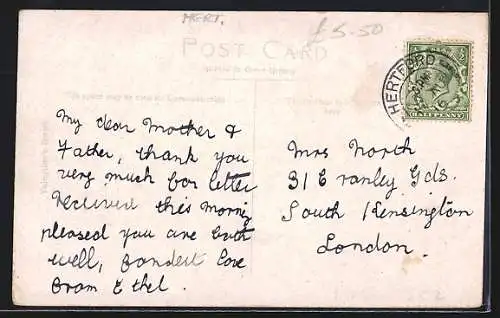 HERT.
£5.50
POST CARD
HERTFORD
HALFPENNY
My dear Mother &
Father, thank you
very much for letter
received this morning
pleased you are both
well, fondest love
from Ethel.
Mrs North
31 Evanley Gds.
South Kensington
London.